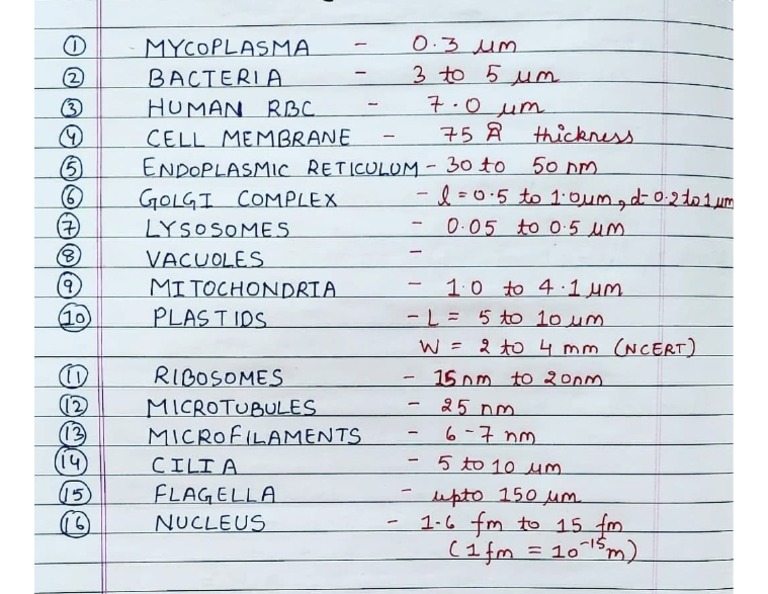 ① MYCOPLASMA - 0.3 µm
② BACTERIA - 3 to 5 µm
③ HUMAN RBC - 7.0 µm
④ CELL MEMBRANE - 75 Å thickness
⑤ ENDOPLASMIC RETICULUM - 30 to 50 nm
⑥ GOLGI COMPLEX - l = 0.5 to 1.0µm, d- 0.2 to 1 µm
⑦ LYSOSOMES - 0.05 to 0.5 µm
⑧ VACUOLES -
⑨ MITOCHONDRIA - 1.0 to 4.1 µm
⑩ PLASTIDS - L = 5 to 10 µm
W = 2 to 4 mm (NCERT)
⑪ RIBOSOMES - 15nm to 20nm
⑫ MICROTUBULES - 25 nm
⑬ MICROFILAMENTS - 6-7 nm
⑭ CILIA - 5 to 10 µm
⑮ FLAGELLA - upto 150 µm
⑯ NUCLEUS - 1.6 fm to 15 fm
(1 fm = 10⁻¹⁵m)